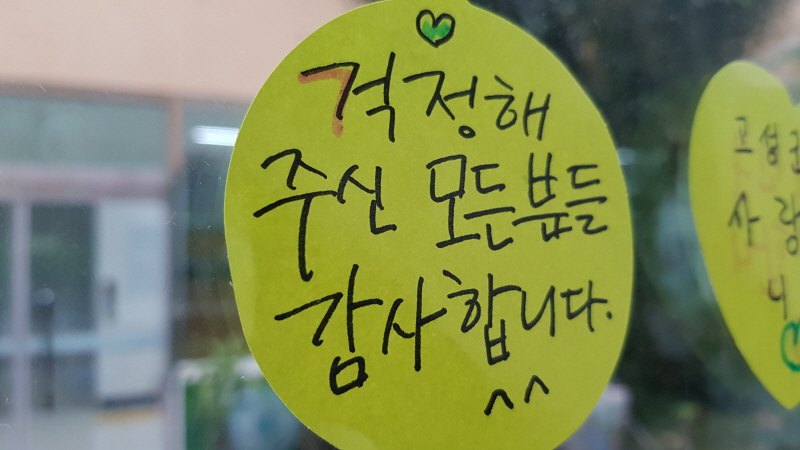 걱정해
주신 모든분들
감사합니다.
^^
고성
사랑
니